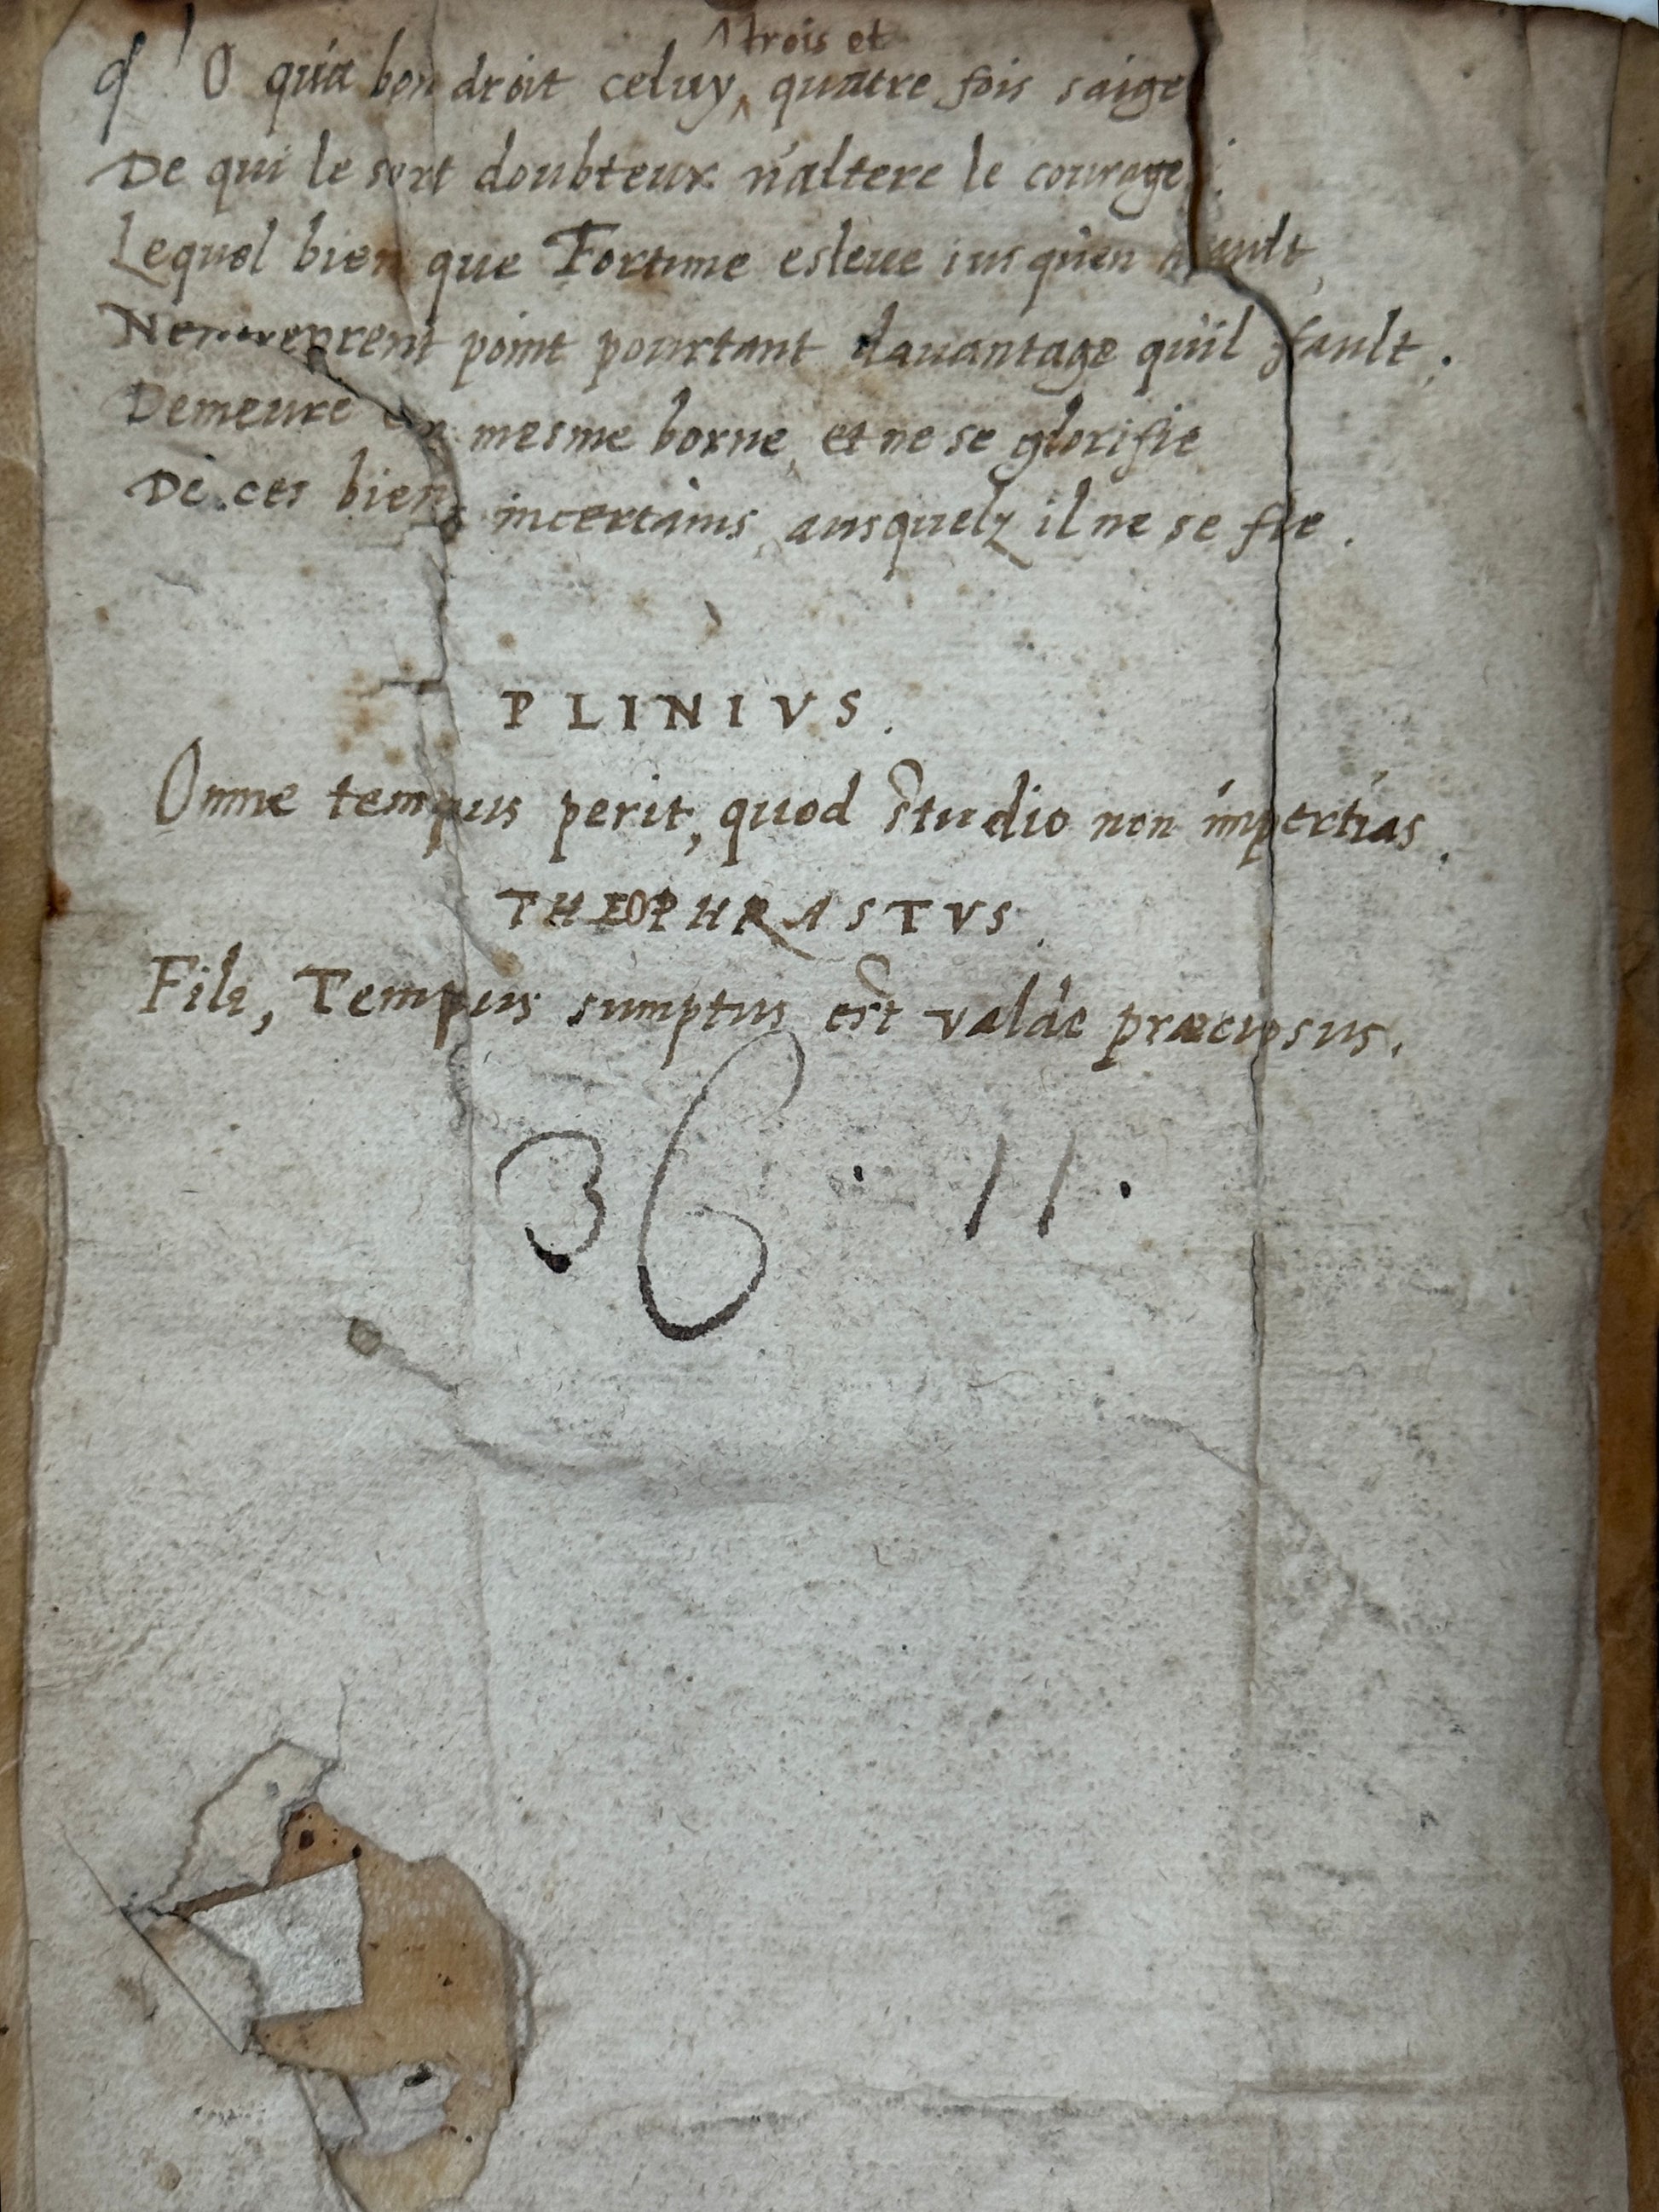 O qu'a bon droit celuy ^ trois et quatre fois saige
De qui le sort doubteux n'altere le courage :
Lequel bien que Fortune esleue iusqu'en hault,
N'entreprent point pourtant dauantage qu'il fault.
Demeure en mesme borne, et ne se glorifie
De ces biens incertains, ausquelz il ne se fie.
PLINIVS.
Omne tempus perit, quod studio non impertias.
THEOPHRASTVS.
Fili, Tempus sumptus est valde præciosus.
36 . 11 .